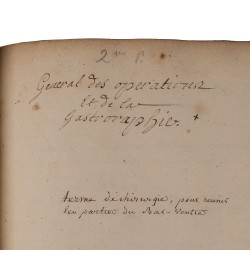 2me P.
General des operations
et de la
Gastroraphie. +
terme de chirurgie, pour reunir
les parties du Bas-Ventre